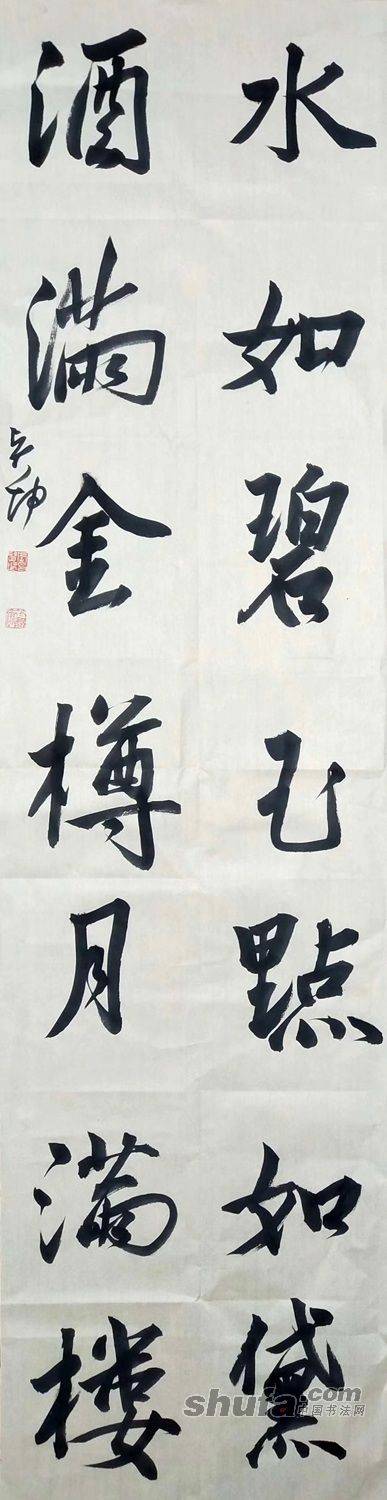 水如碧玉點如黛
酒滿金樽月滿樓
坤
shufa.com
中国书法网